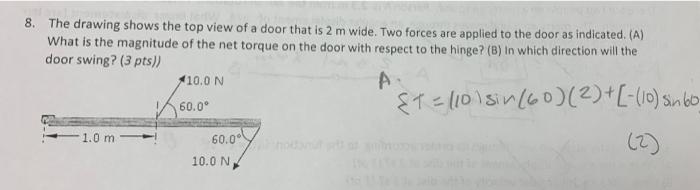 8. The drawing shows the top view of a door that is 2 m wide. Two forces are applied to the door as indicated. (A)
What is the magnitude of the net torque on the door with respect to the hinge? (B) In which direction will the
door swing? (3 pts))
10.0 N
60.0°
1.0 m
60.0°
10.0 N
A.
Στ = (10) sin(60)(2) + [-(10) sin 60
(2)